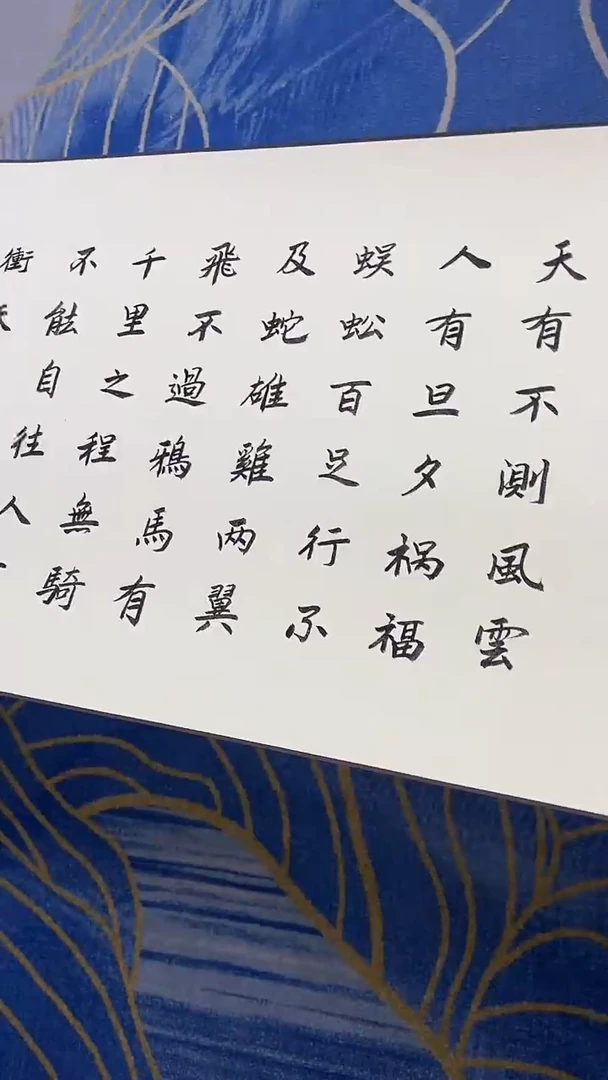 天有不測風雲
人有旦夕祸福
蜈蚣百足行不
及蛇雄雞两翼
飛不過鴉馬有
千里之程無騎
不能自往人
衝